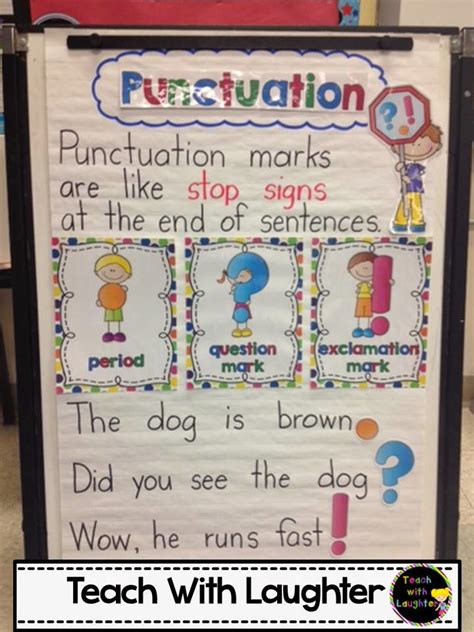 Punctuation
?!
Punctuation marks
are like stop signs
at the end of sentences.
period
question mark
exclamation mark
The dog is brown.
Did you see the dog?
Wow, he runs fast!
Teach With Laughter
Teach
with
Laughter